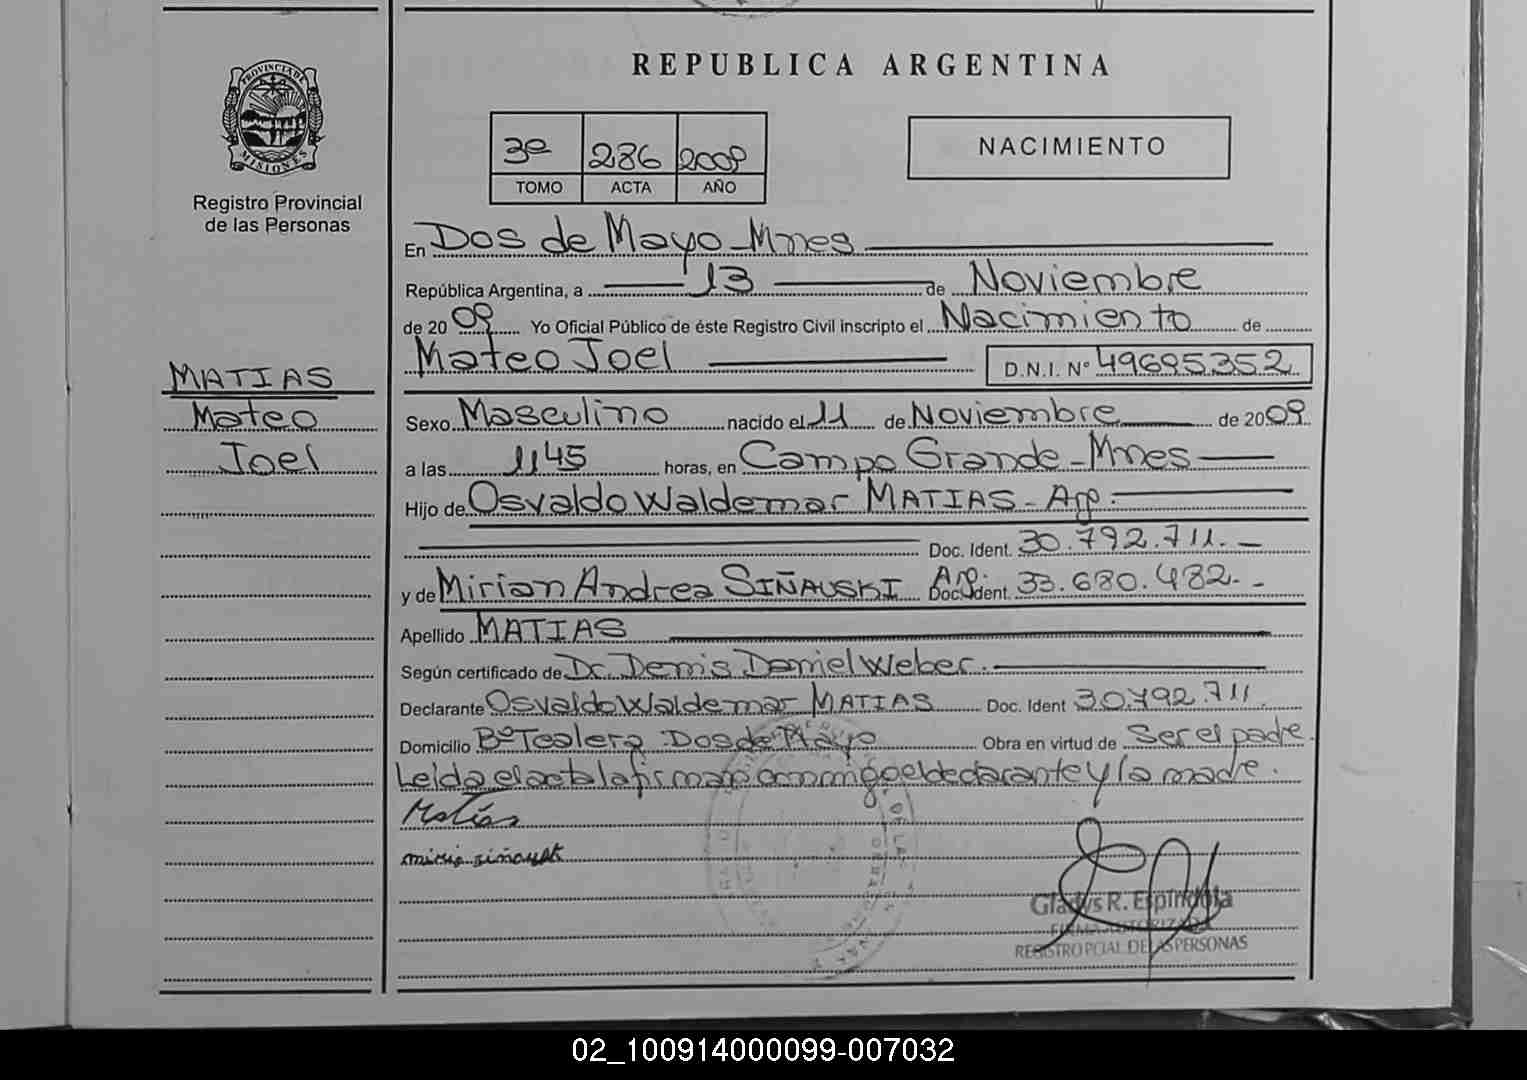 REPUBLICA ARGENTINA
PROVINCIA DE MISIONES
Registro Provincial
de las Personas
3º 286 2009
TOMO ACTA AÑO
NACIMIENTO
En Dos de Mayo - Mnes
República Argentina, a 13 de Noviembre
de 2009 Yo Oficial Público de éste Registro Civil inscripto el Nacimiento de
Mateo Joel D.N.I. Nº 49695352
MATIAS
Mateo
Joel
Sexo Masculino nacido el 11 de Noviembre de 2009
a las 1145 horas, en Campo Grande - Mnes
Hijo de Osvaldo Waldemar MATIAS - Arg.
Doc. Ident. 30.792.711.-
y de Mirian Andrea SIÑAUSKI Arg. Doc. Ident. 33.680.482.-
Apellido MATIAS
Según certificado de Dr. Denis Daniel Weber.
Declarante Osvaldo Waldemar MATIAS Doc. Ident 30.792.711.
Domicilio Bº Tealera Dos de Mayo Obra en virtud de Ser el padre.
Leida el acta la firman conmigo el declarante y la madre.
Matías
Gladys R. Espindola
FIRMA AUTORIZADA
REGISTRO PCIAL DE LAS PERSONAS
02_100914000099-007032